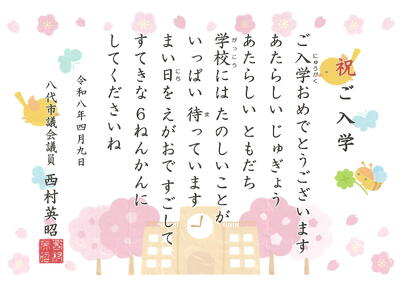 祝 ご入学
ご入学おめでとうございます
あたらしい じゅぎょう
あたらしい ともだち
学校には たのしいことが
いっぱい 待っています
まい日を えがおで すごして
すてきな 6ねんかんに
してくださいね
令和八年四月九日
八代市議会議員 西村英昭